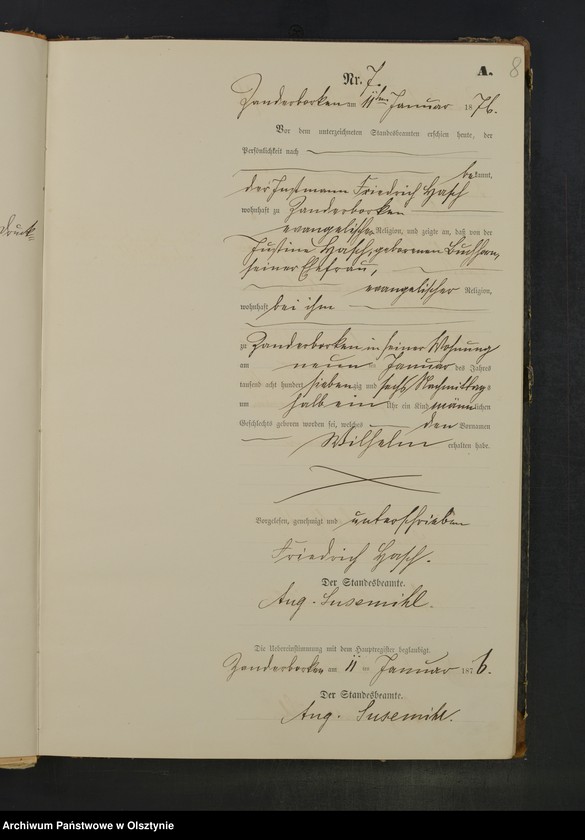 8
A.
Nr. 7.
Zanderborken am 11ten Januar 1876.
Vor dem unterzeichneten Standesbeamten erschien heute, der
Persönlichkeit nach
bekannt,
der Instmann Friedrich Hasch
wohnhaft zu Zanderborken
evangelischer Religion, und zeigte an, daß von der
Justine Hasch, geborenen
seiner Ehefrau,
evangelischer Religion,
wohnhaft bei ihm
zu Zanderborken in seiner Wohnung
am neunten Januar des Jahres
tausend acht hundert siebenzig und sechs Nachmittags
um halb ein Uhr ein Kind männlichen
Geschlechts geboren worden sei, welches den Vornamen
Wilhelm erhalten habe.
Vorgelesen, genehmigt und unterschrieben
Friedrich Hasch.
Der Standesbeamte.
Aug. Susemihl.
Die Uebereinstimmung mit dem Hauptregister beglaubigt.
Zanderborken am 11 ten Januar 1876.
Der Standesbeamte.
Aug. Susemihl.
Archiwum Państwowe w Olsztynie